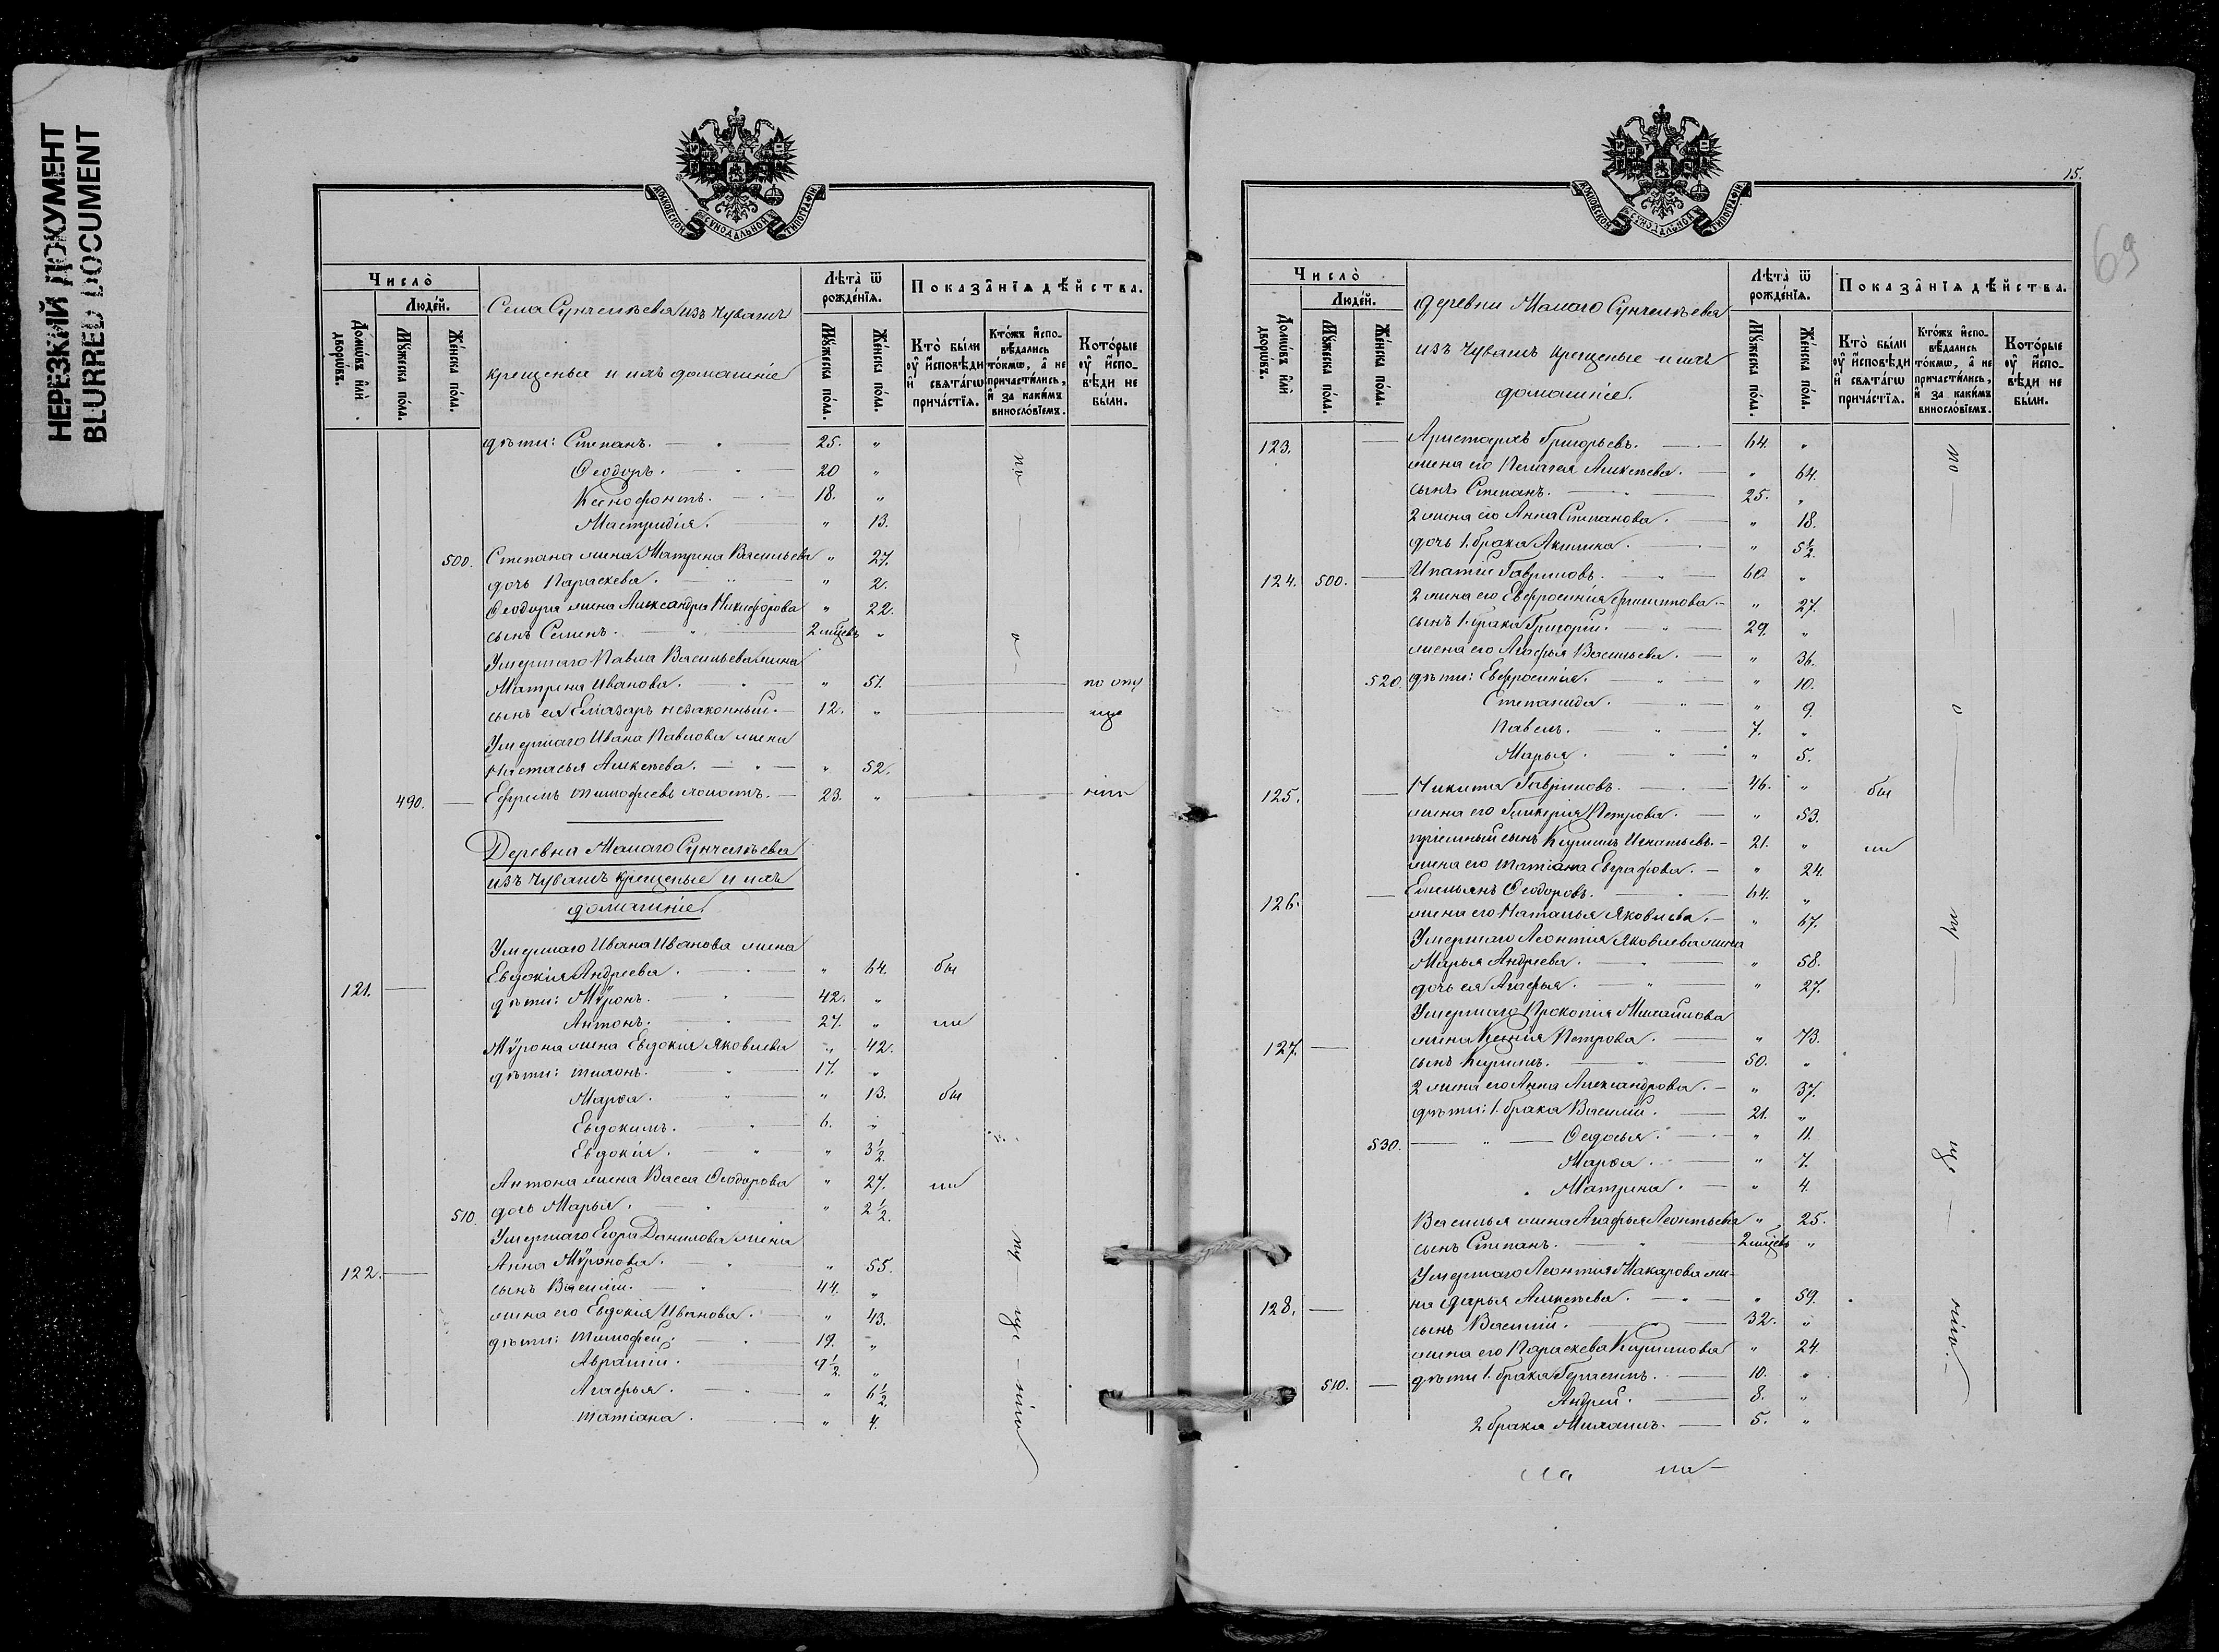 НЕРЕЗКИЙ ДОКУМЕНТ
BLURRED DOCUMENT
МОСКОВСКОЙ СѴНОДАЛЬНОЙ ТИПОГРАФІИ
Число̀
Люде́й.
Домѡ́въ и҆лѝ дворѡ́въ.
Мꙋ́жеска по́ла.
Же́нска по́ла.
Села Сунчелѣева изъ чувашъ
крещеные и ихъ домашніе
Лѣта̀ ѿ рожде́нїѧ.
Мꙋ́жеска по́ла.
Же́нска по́ла.
Показа̑нїѧ дѣ́йства.
Кто̀ бы́ли оу҆ и҆сповѣ́ди и҆ свѧта́гѡ прича́стїѧ.
Кто́жъ и҆сповѣ́дались то́кмѡ, а҆ не причасти́лись, и҆ за каки́мъ винослові́емъ.
Кото́рые оу҆ и҆сповѣ́ди не бы́ли.
дѣти: Степанъ. 25. "
Ѳеодоръ. 20 "
Ксенофонтъ. 18. "
Мастридія. " 13.
500. Степана жена Матрена Васильева " 27.
дочь Параскева. " 2.
Ѳеодора жена Александра Никифорова " 22.
сынъ Семенъ. 2 мѣсцевъ "
Умершаго Павла Васильева жена
Матрена Иванова. " 51. по опу
сынъ ея Елїазаръ незаконный. 12. " ще
Умершаго Ивана Павлова жена
Настасья Алексѣева. " 52.
490. Ефремъ Тимофеевъ холостъ. 23. " нію
Деревни Малаго Сунчелѣева
изъ чувашъ крещеные и ихъ
домашніе.
Умершаго Ивана Иванова жена
121. Евдокія Андреева. " 64. бы
дѣти: Мѵронъ. 42. "
Антонъ. 27. " ли
Мѵрона жена Евдокія Яковлева " 42.
дѣти: Тихонъ. 17. "
Марѳа. " 13. бы
Евдокимъ. 6. "
Евдокія. " 3½.
Антона жена Васса Ѳеодорова " 27. ли
510. дочь Марья. " 2½.
Умершаго Егора Данилова жена
122. Анна Мѵронова. " 55.
сынъ Василій. 44. "
жена его Евдокія Иванова. " 43.
дѣти: Тимофей. 19. "
Авраамій. 9½. "
Агафья. " 6½.
Татіана. " 4.
по о пу ще нію
15.
69
МОСКОВСКОЙ СѴНОДАЛЬНОЙ ТИПОГРАФІИ
Число̀
Люде́й.
Домѡ́въ и҆лѝ дворѡ́въ.
Мꙋ́жеска по́ла.
Же́нска по́ла.
Деревни Малаго Сунчелѣева
изъ чувашъ крещеные и ихъ
домашніе.
Лѣта̀ ѿ рожде́нїѧ.
Мꙋ́жеска по́ла.
Же́нска по́ла.
Показа̑нїѧ дѣ́йства.
Кто̀ бы́ли оу҆ и҆сповѣ́ди и҆ свѧта́гѡ прича́стїѧ.
Кто́жъ и҆сповѣ́дались то́кмѡ, а҆ не причасти́лись, и҆ за каки́мъ винослові́емъ.
Кото́рые оу҆ и҆сповѣ́ди не бы́ли.
123. Аристархъ Григорьевъ. 64. "
жена его Пелагея Алексѣева. " 64.
сынъ Степанъ. 25. "
2 жена его Анна Степанова. " 18.
дочь 1. брака Акилина. " 5½.
124. 500. Ипатій Гавриловъ. 60. "
2 жена его Евфросинія Филиппова. " 27.
сынъ 1. брака Григорій. 29. "
жена его Агафья Васильева. " 36.
520. дѣти: Евфросинія. " 10.
Степанида. " 9.
Павелъ. 7. "
Марья. " 5.
125. Никита Гавриловъ. 46. " бы
жена его Гликерія Петрова. " 53.
пріемный сынъ Кириллъ Игнатьевъ. 21. " ли
жена его Татіана Евграфова. " 24.
126. Емельянъ Ѳеодоровъ. 64. "
жена его Наталья Яковлева. " 67.
Умершаго Леонтія Яковлева жена
Марья Андреева. " 58.
дочь ея Агафья. " 27.
Умершаго Прокопія Михайлова
127. жена Ксенія Петрова. " 73.
сынъ Кириллъ. 50. "
2 жена его Анна Александрова. " 37.
дѣти: 1. брака Василій. 21. "
530. " Ѳедосья. " 11.
Марѳа. " 7.
Матрена. " 4.
Василья жена Агафья Леонтьева " 25.
сынъ Степанъ. 2 мѣсцевъ "
Умершаго Леонтія Макарова же-
128. на Дарья Алексѣева. " 59.
сынъ Василій. 32. "
жена его Параскева Кириллова " 24.
510. дѣти 1. брака Герасимъ. 10. "
Андрей. 8. "
2 брака Михаилъ. 5. "
по о пу ще нію